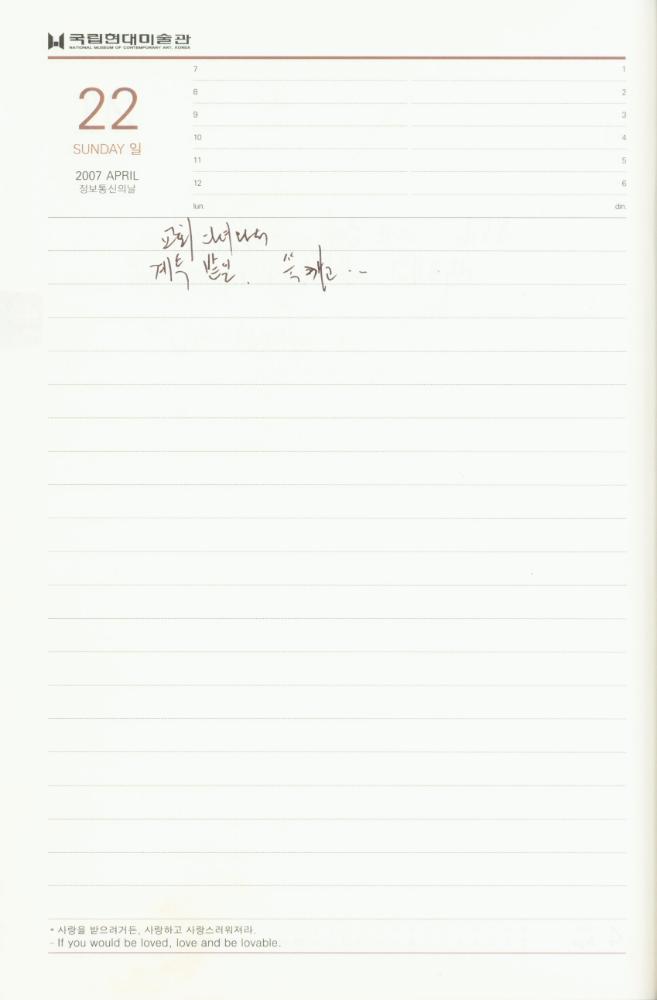 국립현대미술관
NATIONAL MUSEUM OF CONTEMPORARY ART, KOREA
22
SUNDAY 일
2007 APRIL
정보통신의날
7
8
9
10
11
12
lun.
1
2
3
4
5
6
din.
교회 다녀와서
계속 밭일. 쑥 캐고 ..
* 사랑을 받으려거든, 사랑하고 사랑스러워져라.
- If you would be loved, love and be lovable.